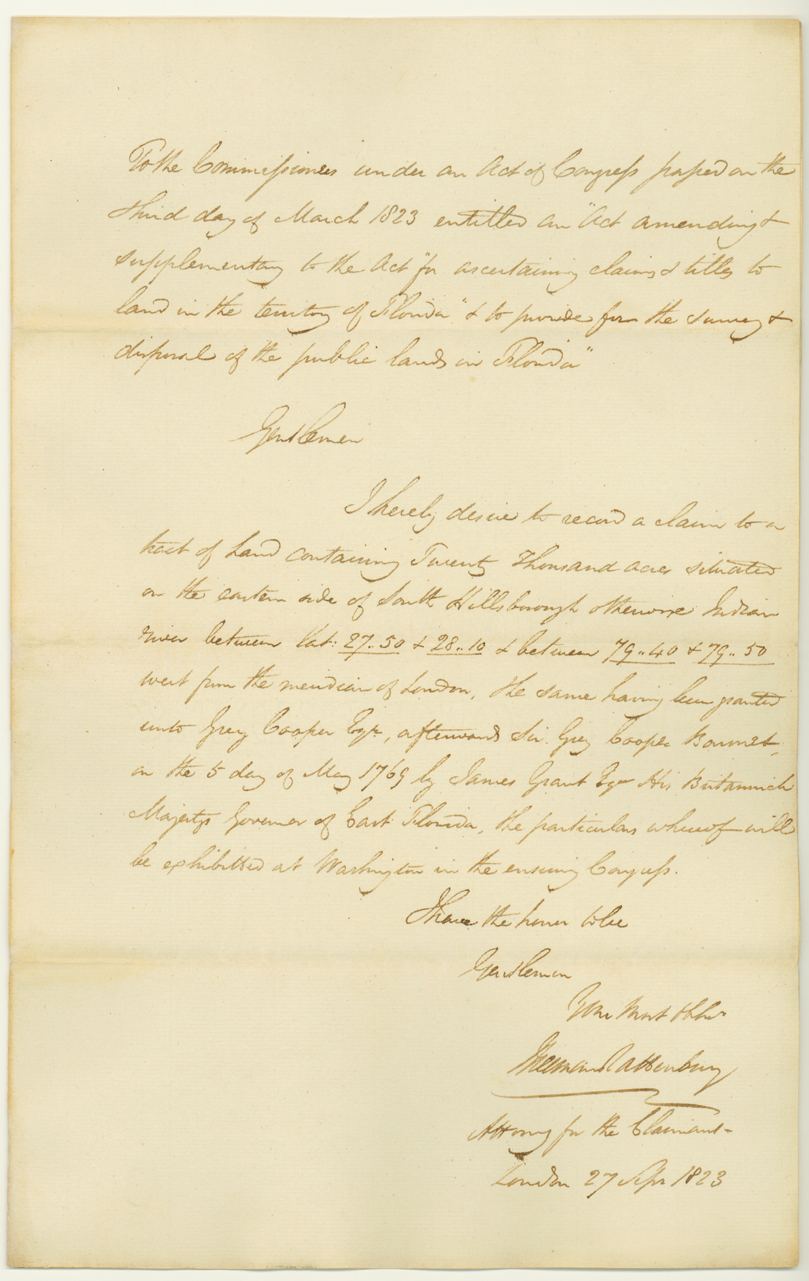 To the Commissioners under an Act of Congress passed on the
third day of March 1823 entitled an "Act amending &
supplementary to the Act "for ascertaining claims & titles to
land in the territory of Florida" & to provide for the survey &
disposal of the public lands in Florida"
Gentlemen
I hereby desire to record a claim to a
tract of Land containing Twenty Thousand acres situated
on the eastern side of South Hillsborough otherwise Indian
river between Lat: 27..50 & 28..10 & between 79..40 & 79..50
west from the meridian of London, the same having been granted
unto Grey Cooper Esqr, afterwards Sir Grey Cooper Baronet,
on the 5 day of May 1769 by James Grant Esqr His Britannick
Majestys Governer of East Florida, the particulars whereof will
be exhibitted at Washington in the ensuing Congress.
I have the honor to be
Gentlemen
Your most Obt
Freeman Rattenbury
Attorney for the Claimant
London 27 Apr 1823